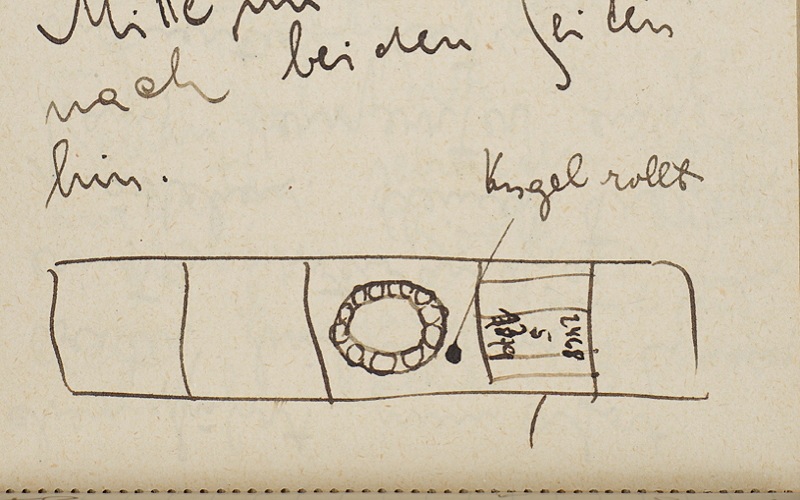 Mitte nu
nach beiden Seiten
hin.
Kugel rollt
5
2468